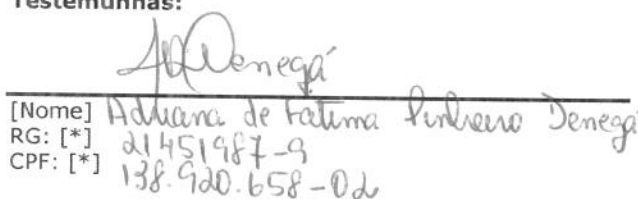 Testemunhas:
Denegá
[Nome] Adriana de Fatima Pinheiro Denegá
RG: [*] 21451987-9
CPF: [*] 138.920.658-02